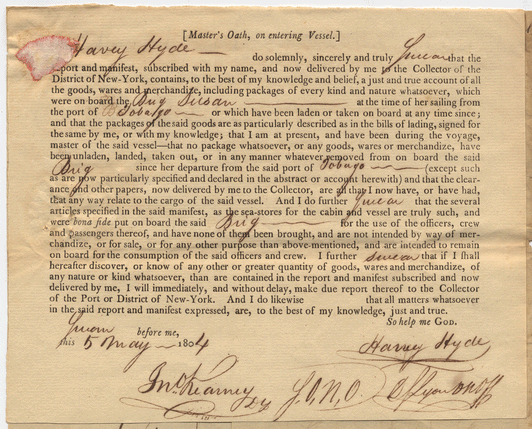 [Master's Oath, on entering Vessel.]
Harvey Hyde do solemnly, sincerely and truly Swear that the
report and manifest, subscribed with my name, and now delivered by me to the Collector of the
District of New-York, contains, to the best of my knowledge and belief, a just and true account of all
the goods, wares and merchandize, including packages of every kind and nature whatsoever, which
were on board the Brig Susan at the time of her sailing from
the port of Tobago or which have been laden or taken on board at any time since;
and that the packages of the said goods are as particularly described as in the bills of lading, signed for
the same by me, or with my knowledge; that I am at present, and have been during the voyage,
master of the said vessel—that no package whatsoever, or any goods, wares or merchandize, have
been unladen, landed, taken out, or in any manner whatever removed from on board the said
Brig since her departure from the said port of Tobago (except such
as are now particularly specified and declared in the abstract or account herewith) and that the clear-
ance and other papers, now delivered by me to the Collector, are all that I now have, or have had,
that any way relate to the cargo of the said vessel. And I do further Swear that the several
articles specified in the said manifest, as the sea-stores for the cabin and vessel are truly such, and
were bona fide put on board the said Brig for the use of the officers, crew
and passengers thereof, and have none of them been brought, and are not intended by way of mer-
chandize, or for sale, or for any other purpose than above-mentioned, and are intended to remain
on board for the consumption of the said officers and crew. I further swear that if I shall
hereafter discover, or know of any other or greater quantity of goods, wares and merchandize, of
any nature or kind whatsoever, than are contained in the report and manifest subscribed and now
delivered by me, I will immediately, and without delay, make due report thereof to the Collector
of the Port or District of New-York. And I do likewise that all matters whatsoever
in the said report and manifest expressed, are, to the best of my knowledge, just and true.
So help me GOD.
Sworn before me,
this 5 May 1804
Harvey Hyde
Jno Kearney Dy